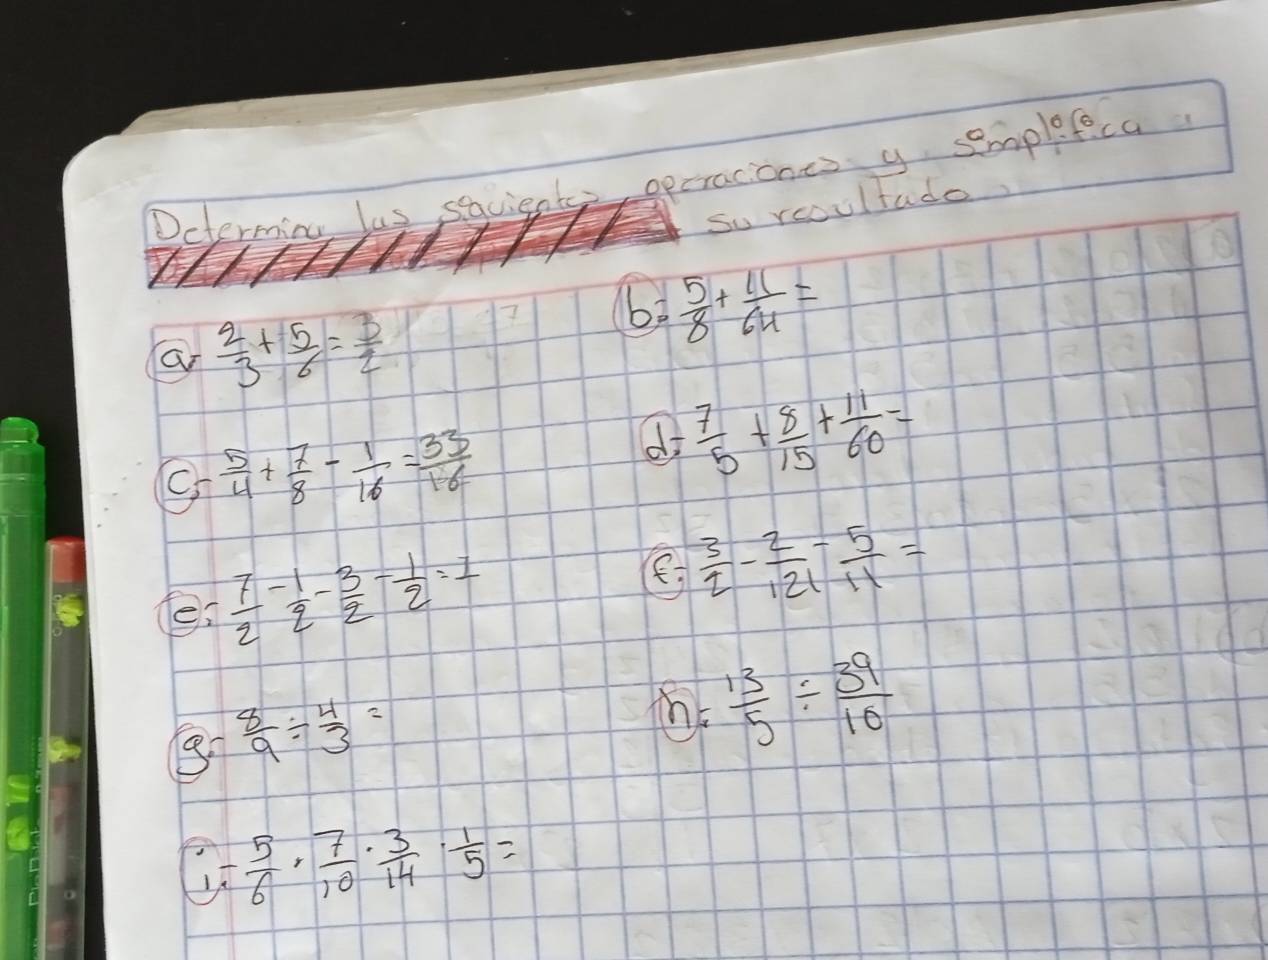 Determina las siguientes operaciones y simplifica
su resultado
a- 2/3 + 5/6 = 3/2
b- 5/8 + 11/64 =
c- 5/4 + 7/8 - 1/16 = 33/16
d- 7/5 + 8/15 + 11/60 =
e- 7/2 - 1/2 - 3/2 - 1/2 = 1
f- 3/2 - 2/121 - 5/11 =
g- 8/9 ÷ 4/3 =
h- 13/5 ÷ 39/10
i- 5/6 · 7/10 · 3/14 · 1/5 =